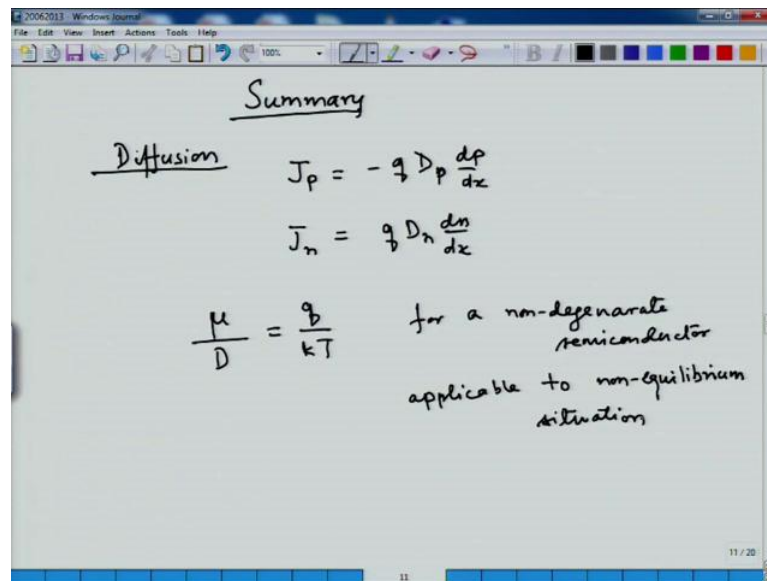 20062013 - Windows Journal
File Edit View Insert Actions Tools Help
100%
B I
Summary
Diffusion
J_p = - q D_p dp/dx
J_n = q D_n dn/dx
μ/D = q/kT for a non-degenarate
semiconductor
applicable to non-equilibrium
situation
11 / 20
11